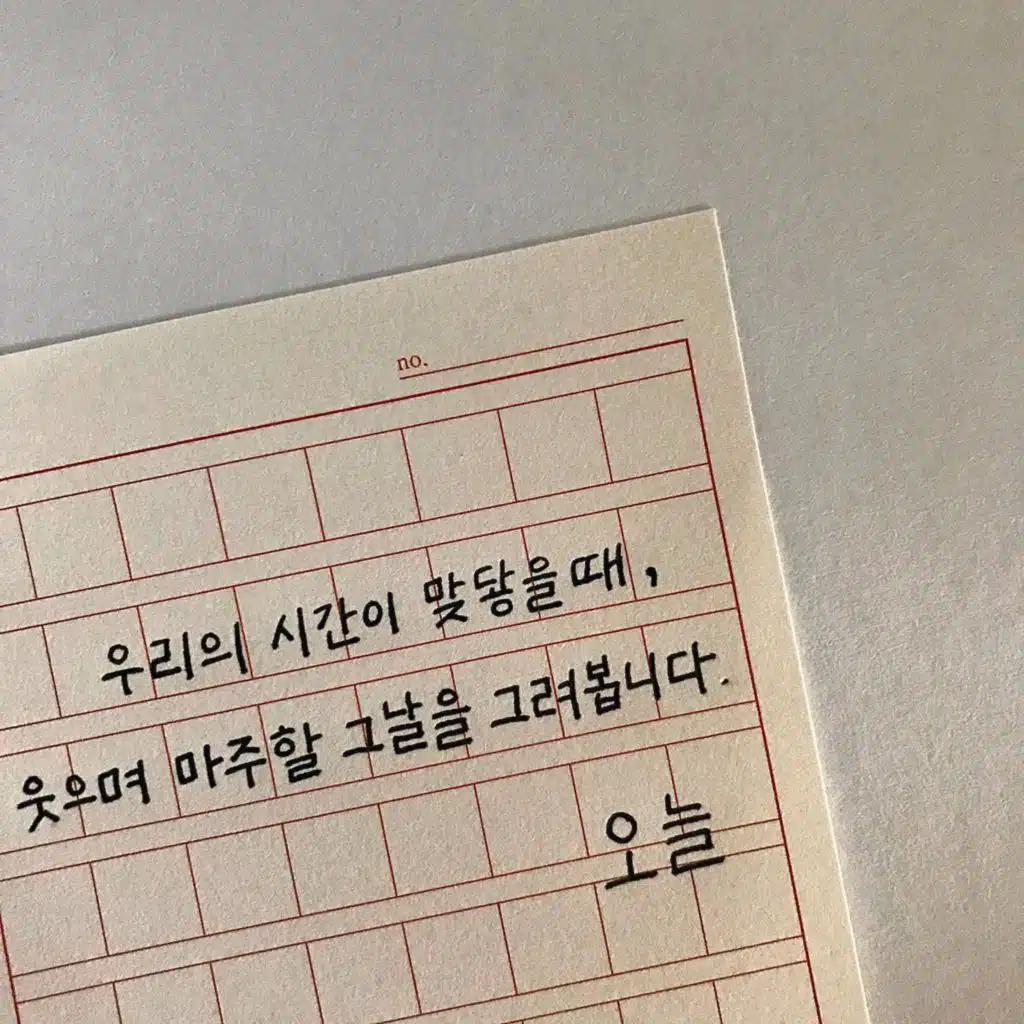 no.
우리의 시간이 맞닿을때,
웃으며 마주할 그날을 그려봅니다.
오늘